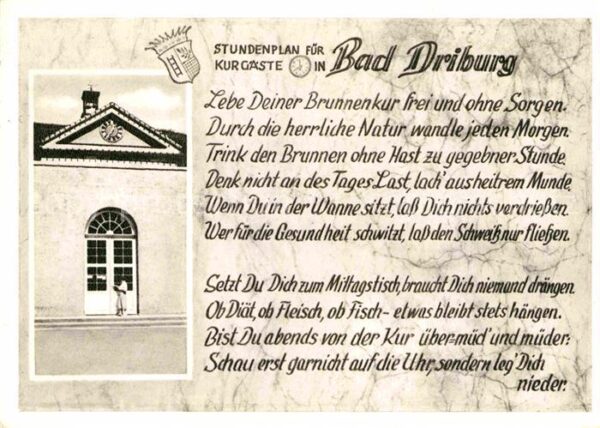 STUNDENPLAN FÜR
KURGÄSTE IN Bad Driburg
Lebe Deiner Brunnenkur frei und ohne Sorgen.
Durch die herrliche Natur wandle jeden Morgen.
Trink den Brunnen ohne Hast zu gegebner Stunde,
Denk nicht an des Tages Last, lach' aus heitrem Munde,
Wenn Du in der Wanne sitzt, laß Dich nichts verdrießen.
Wer für die Gesundheit schwitzt, laß den Schweiß nur fließen.
Setzt Du Dich zum Mittagstisch, braucht Dich niemand drängen.
Ob Diät, ob Fleisch, ob Fisch - etwas bleibt stets hängen.
Bist Du abends von der Kur über-müd' und müder:
Schau erst garnicht auf die Uhr, sondern leg' Dich
nieder.